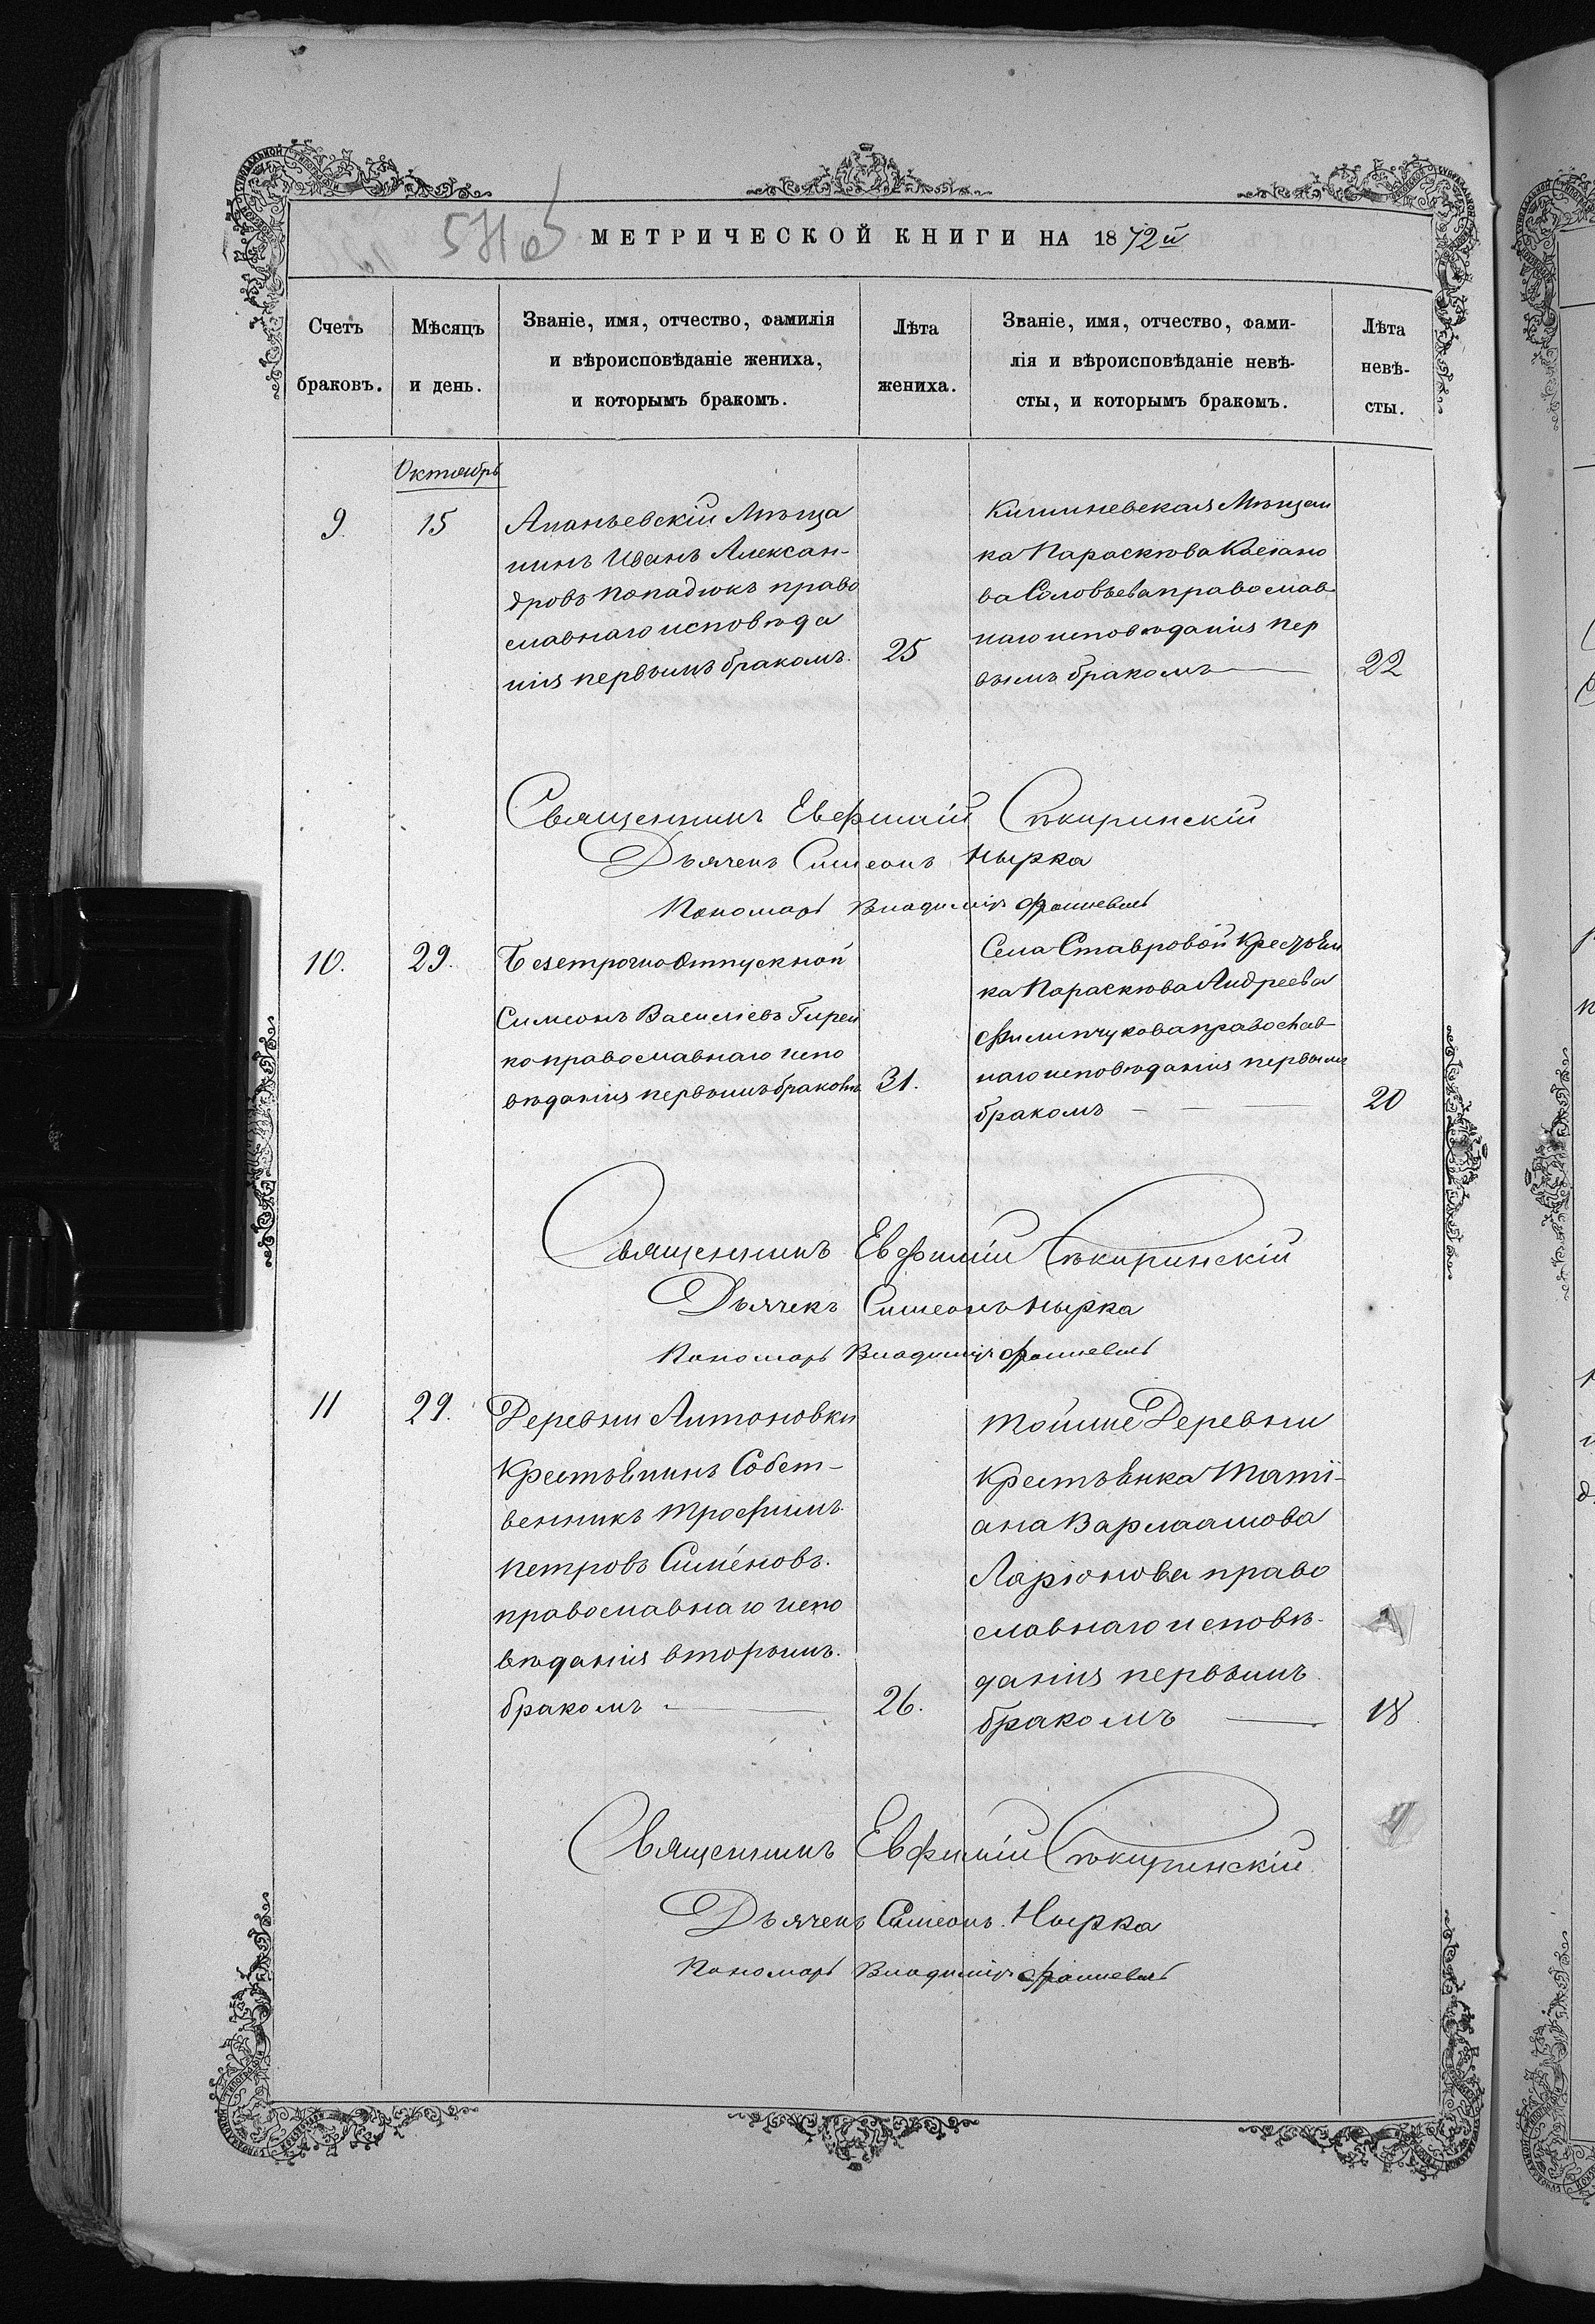 МЕТРИЧЕСКОЙ КНИГИ НА 1872й
Счетъ браковъ.
Мѣсяцъ и день.
Званіе, имя, отчество, фамилія
и вѣроисповѣданіе жениха,
и которымъ бракомъ.
Лѣта жениха.
Званіе, имя, отчество, фами-
лія и вѣроисповѣданіе невѣ-
сты, и которымъ бракомъ.
Лѣта невѣ-
сты.
Октябрь
9. 15
Ананьевскій Мѣща
нинъ Иванъ Алексан-
дровъ Попадюкъ право
славнаго исповѣда
нія первымъ бракомъ.
25
Кишиневская Мѣщан
ка Параскева Касіано
ва Соловьева православ
наго исповѣданія пер
вымъ бракомъ
22
Священникъ Евфимій Сѣкиринскій
Дьячекъ Симеонъ Нырка
Пономарь Владиміръ
10. 29.
Безсрочно Отпускной
Симеонъ Василіевъ Гирен
ко православнаго испо
вѣданія первымъ бракомъ
31.
Села Ставровой Крестьян
ка Параскева Андреева
Филипчукова православ
наго исповѣданія первымъ
бракомъ
20
Священникъ Евфимій Сѣкиринскій
Дьячекъ Симеонъ Нырка
Пономарь Владиміръ
11 29.
Деревни Антоновки
Крестьянинъ Собст-
венникъ Трофимъ
Петровъ Сименовъ.
православнаго испо
вѣданія вторымъ.
бракомъ
26.
Тойже Деревни
Крестьянка Тати-
ана Варлаамова
Ларіонова право
славнаго исповѣ-
данія первымъ
бракомъ
18
Священникъ Евфимій Сѣкиринскій
Дьячекъ Симеонъ. Нырка
Пономарь Владиміръ